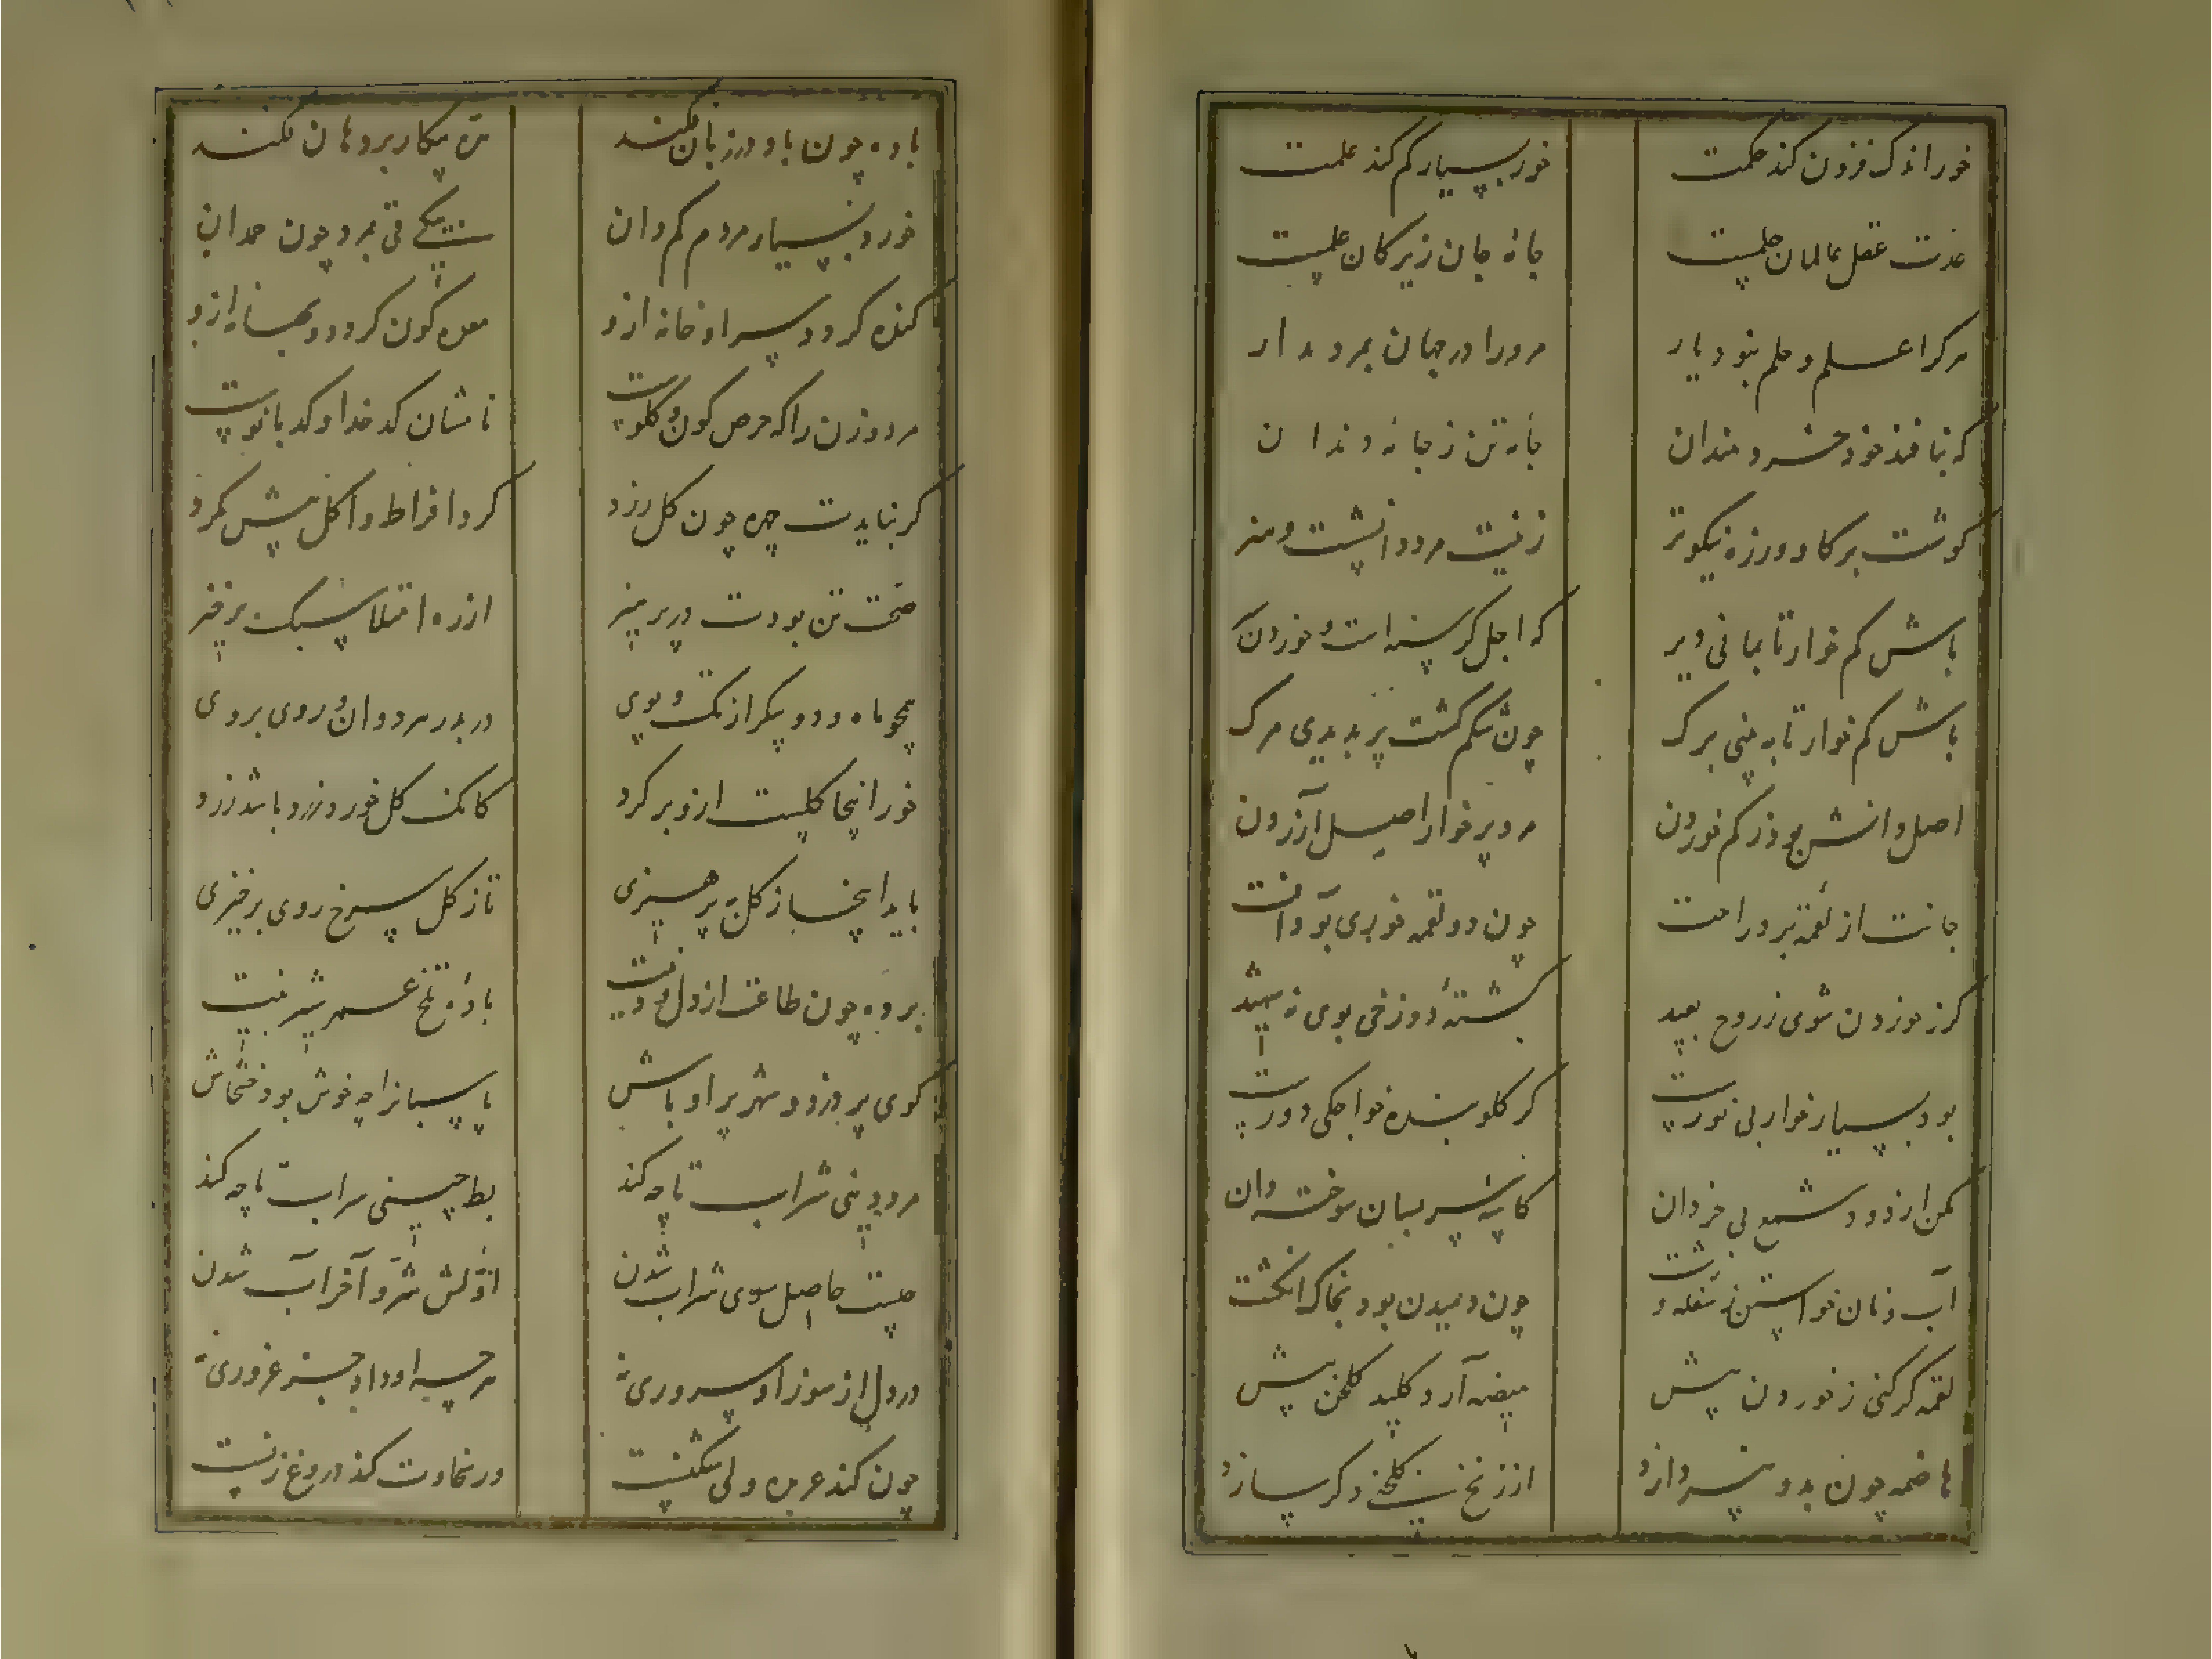 خور اندک فزون کند حکمت
خور بسیار کم کند علمت
عذت عقل عالمان حلمست
جانه جان زیرکان علمست
هرکرا علم و حلم نبود یار
مرد را در جهان بمرد مدار
که نبافند خود خردمندان
جانه تن ز جانه دندان
گوشت بر گاو ورزه نیکوتر
زینت مرد دانشست و هنر
باش کم خوار تا بمانی دیر
که اجل گرسنه است و خوردن
باش کم خوار تا به بینی برگ
چون شکم گشت پر بدیدی مرگ
اصل دانش بود ز کم خوردن
مرد پر خوار اصل آزردن
جانت از لقمه تر و راحت
چون دو لقمه خوری تو و آفت
گر ز خوردن شوی ز روح بعید
کشته دوزخی بوی نه شهید
بود بسیار خوار بی نورست
گر گلو بنده خواجگی دورست
کمن از دود شمع بی خردان
کاسه شیر لبان سوخته دان
آب و نان خواستن ز سفله
چون دمیدن بود بخاک انگشت
لقمه گر کنی ز خوردن بیش
بیضه آرد کلید گلخن پیش
هاضمه چون بدو نپردازد
از زنخ گلخنی دگر سازد
باده چون باد ورزبان فکند
تره بیکار بر دهان فکند
خورد بسیار مردم کم دان
سنت یکی قی بمرد چون حمدان
گنده گردد سرا و خانه ازو
معده کون گردد و بهانه ازو
مرد و زن را که حرص کون و گلوست
نامشان کدخدا و کدبانوست
گر نبایدت چهره چون گل زرد
گرد افراط و اکل بیش مگرد
صحت تن بودت در پرهیز
از ره امتلا سبک برخیز
همچو ماه دو پیکر از تک و پوی
در بدر مر دوان و روی بروی
خور اینجا گلیست ازو برگرد
کانک گل خورد زرد باشد زرد
باید اینجا ز گل بپرهیزی
تا ز گل سرخ روی برخیزی
برده چون طاعت از دل و دینت
باده تلخ عمر شیرینت
کوی پر دزد و شهر پر اوباش
پاسبانرا چه خوش بود خشخاش
مرد دینی شرابت تا چه کند
بط چینی سرابت تا چه کند
چیست حاصل سوی شراب شدن
اولش شر و آخر آب شدن
در دل از سوز او سروری نه
هرچه او داد جز غروری نه
چون کند عربده ولی شکنیست
ور سخاوت کند دروغ زنیست